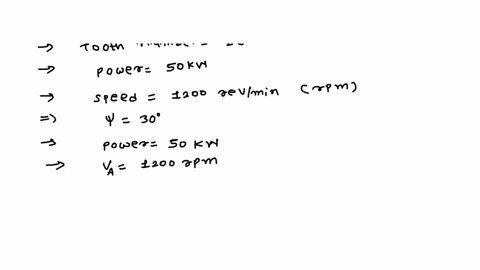 → Tooth
→ power = 50 KW
→ speed = 1200 rev/min (rpm)
⇒ ψ = 30°
→ power = 50 KW
→ V_A = 1200 rpm